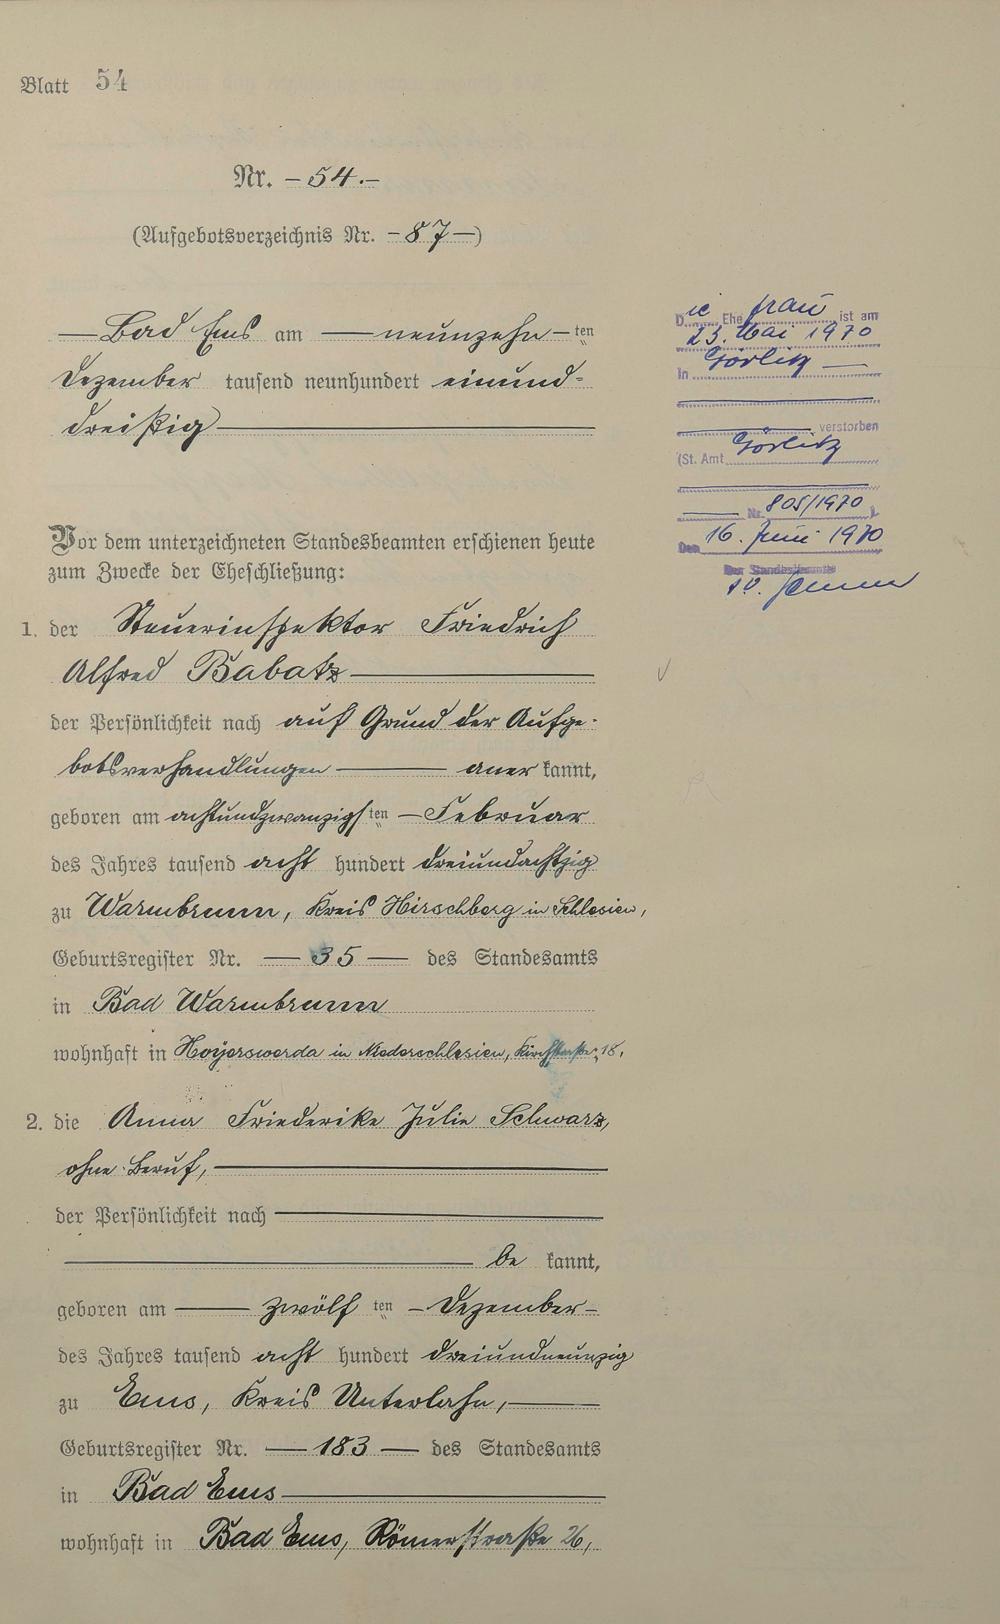 Blatt 54
Nr. – 54. –
(Aufgebotsverzeichnis Nr. – 87 –)
Bad Ems am — neunzehn – ten
Dezember tausend neunhundert einund-
dreißig
Vor dem unterzeichneten Standesbeamten erschienen heute
zum Zwecke der Eheschließung:
1. der Steuerinspektor Friedrich
Alfred Babatz
der Persönlichkeit nach auf Grund der Aufge-
botsverhandlungen — aner kannt,
geboren am achtundzwanzigsten – Februar
des Jahres tausend acht hundert dreiundachtzig
zu Warmbrunn, Kreis Hirschberg in Schlesien,
Geburtsregister Nr. — 35 — des Standesamts
in Bad Warmbrunn
wohnhaft in Hoyerswerda in Niederschlesien, Kirchstraße 18,
2. die Anna Friederike Julie Schwarz,
ohne Beruf,
der Persönlichkeit nach
be kannt,
geboren am — zwölf ten – Dezember –
des Jahres tausend acht hundert dreiundneunzig
zu Ems, Kreis Unterlahn,
Geburtsregister Nr. — 183 — des Standesamts
in Bad Ems
wohnhaft in Bad Ems, Römerstraße 26,
Die Ehefrau ist am
23. Mai 1970
in Görlitz
verstorben
(St. Amt Görlitz
Nr. 805/1970 ).
Den 16. Juni 1970
Der Standesbeamte